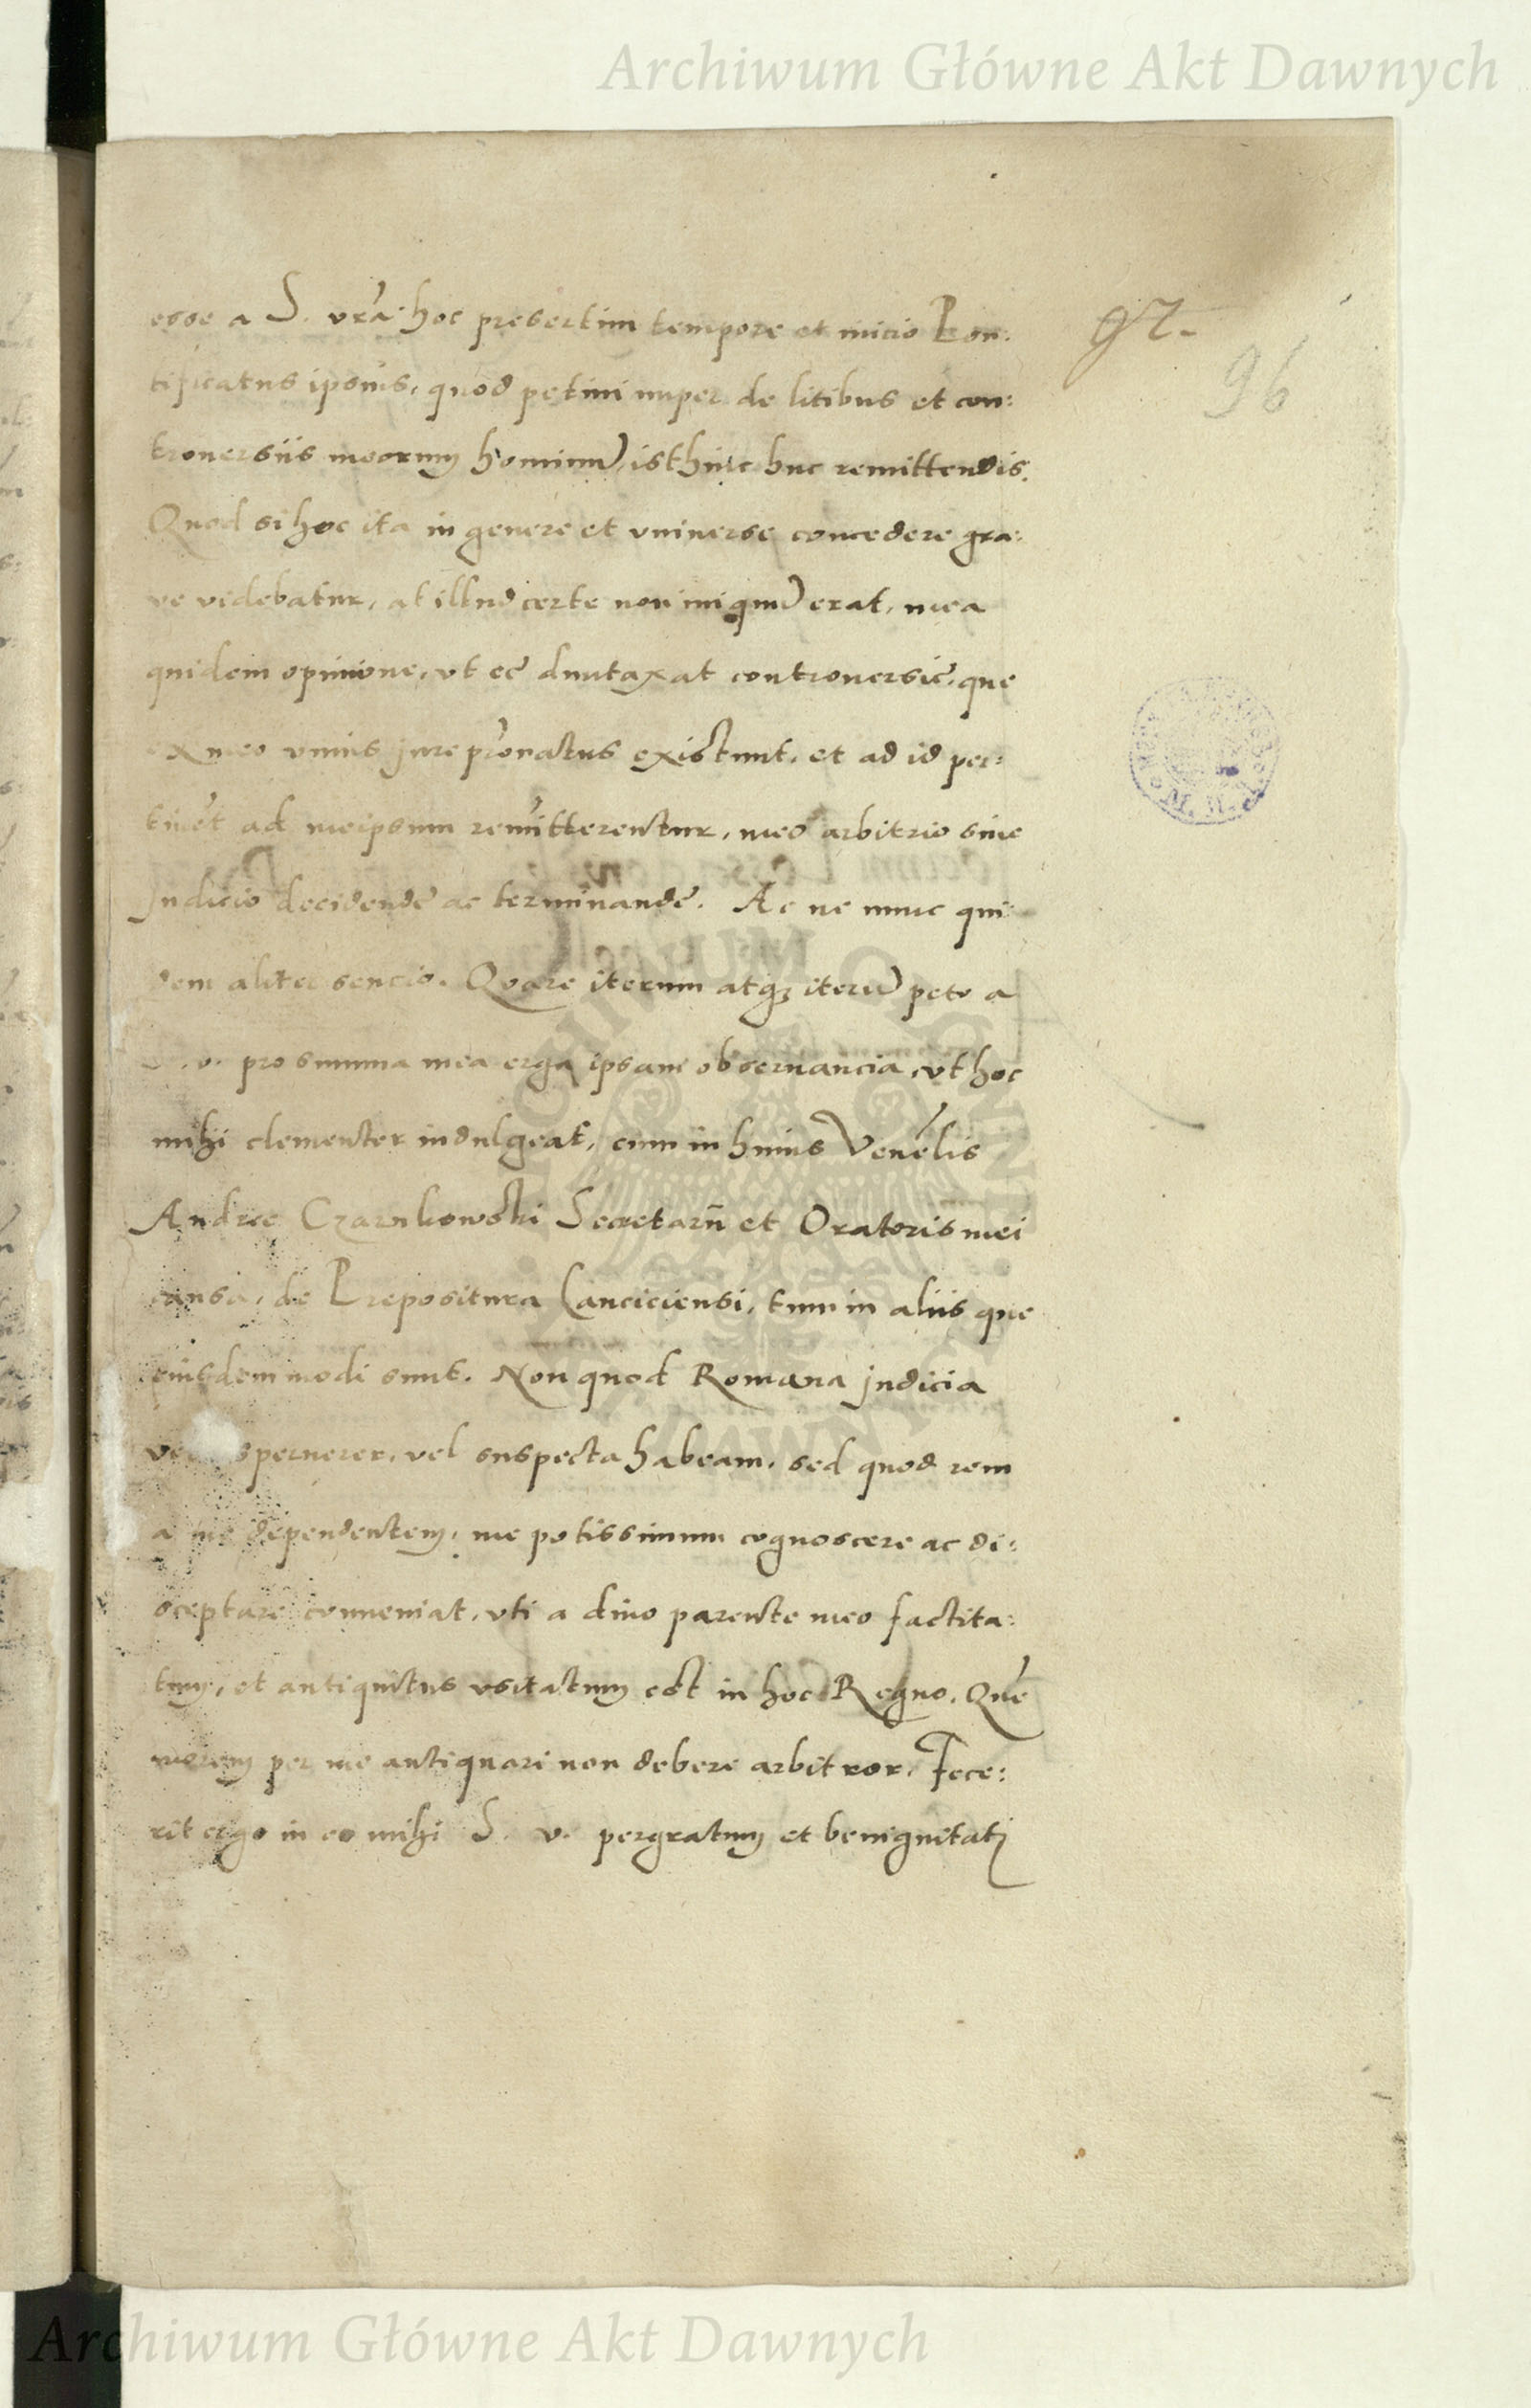 Archiwum Główne Akt Dawnych
97.
96
esse a S. vrã hoc presertim tempore et inicio Pon:
tificatus ipsius, quod petini nuper de litibus et con:
trouersiis meorum hominũ, isthinc huc remittendis.
Quod si hoc ita in genere et vniuerse concedere gra:
ve videbatur, at illud certe non iniquũ erat, mea
quidem opinione, vt eę duntaxat controuersię, que
ex meo vnius jure prõnatus existunt, et ad id per:
tinẽt ad meipsum remitterentur, meo arbitrio siue
judicio decidendę ac terminandę. Ac ne nunc qui
dem aliter sencio. Quare iterum atq; iterũ peto a
S. v. pro summa mea erga ipsam obseruancia, vt hoc
mihi clementer indulgeat, cum in huius Venẽlis
Andree Czarnkowski Secretarii et Oratoris mei
causa, de Prepositura Lanciciensi, tum in aliis que
eiusdem modi sunt. Non quod Romana judicia
spernerem, vel suspecta habeam, sed quod rem
a me dependentem, me potissimum cognoscere ac di:
sceptare conueniat, vti a diuo parente meo factita:
tum, et antiquitus vsitatum est in hoc Regno. Quẽ
morem per me antiquari non debere arbitror. Fece:
rit ergo in eo mihi S. v. pergratum et benignitati
Archiwum Główne Akt Dawnych